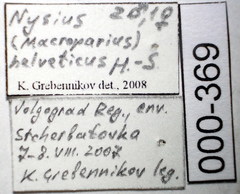 Nysius 2♂, 1♀
(Macroparius)
helveticus H.-S.
K. Grebennikov det., 2008
Volgograd Reg., env.
Stcherbatovka
7-8. VIII. 2007
K. Grebennikov leg.
000-369